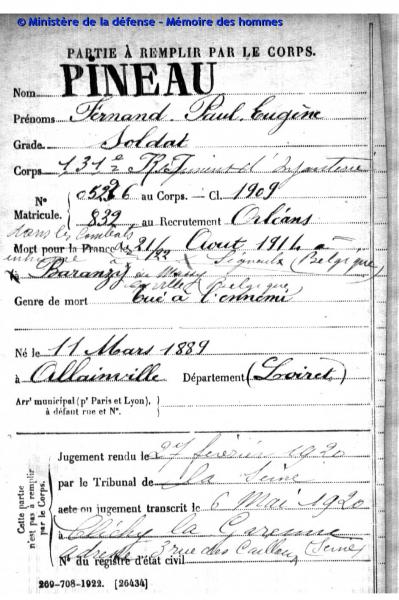 © Ministère de la défense - Mémoire des hommes
PARTIE À REMPLIR PAR LE CORPS.
Nom PINEAU
Prénoms Fernand Paul Eugène
Grade Soldat
Corps 131e Régiment d'Infanterie
N° Matricule. au Corps. — Cl. 1909
839 au Recrutement Orléans
dans les combats
Mort pour la France le 21 Août 1914 à
22 Signeulx (Belgique)
à Baranzy ou Mussy
(Belgique)
Genre de mort tué à l'ennemi
Né le 11 Mars 1889
à Allainville Département (Loiret)
Arr' municipal (p' Paris et Lyon),
à défaut rue et N°.
Cette partie n'est pas à remplir par le Corps.
Jugement rendu le 27 février 1920
par le Tribunal de la Seine
acte ou jugement transcrit le 6 Mai 1920
à Clichy la Garenne
adresse 3 rue des Cailloux (Seine)
N° du registre d'état civil
269-708-1922. [26434]